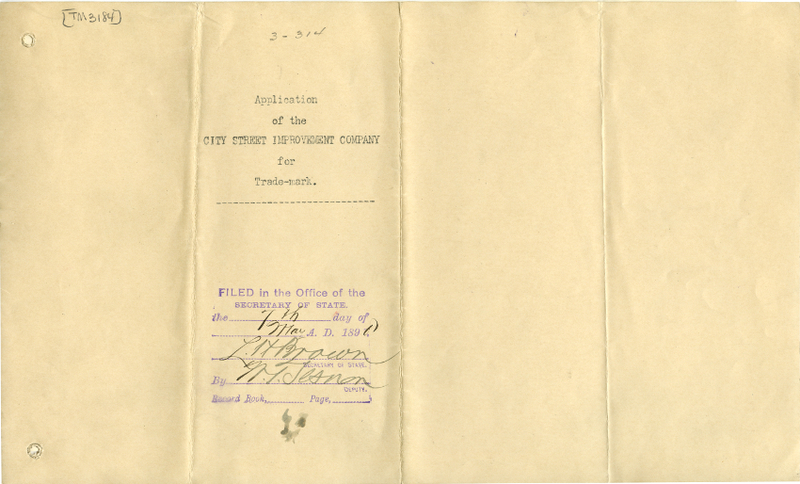 [TM3184]
3-314
Application
of the
CITY STREET IMPROVEMENT COMPANY
for
Trade-mark.
FILED in the Office of the
SECRETARY OF STATE.
the 7th day of
Mar A. D. 189
L. H. Brown
SECRETARY OF STATE.
By
DEPUTY.
Record Book, Page,